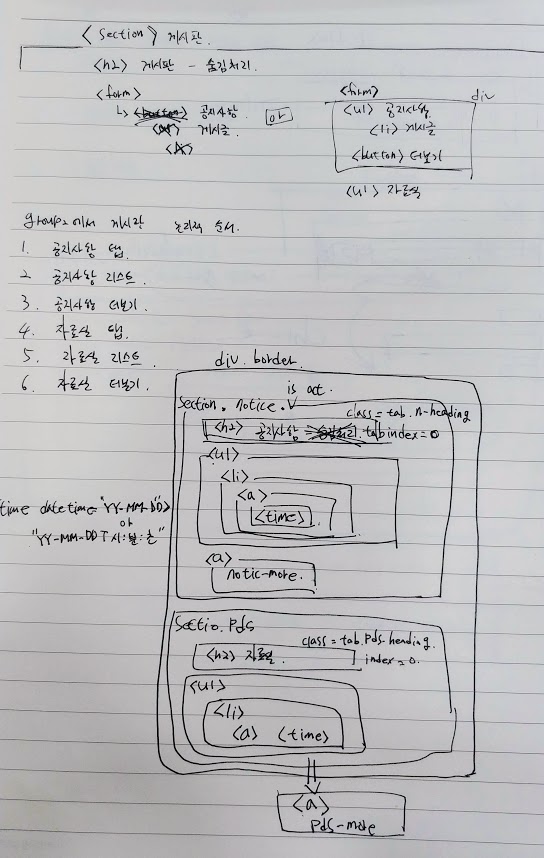 <section> 게시판.
<h2> 게시판 - 숨김처리.
<form>
<button> 공지사항
게시글
야
<form>
div
<ul> 공지사항
<li> 게시글
<button> 더보기
<ul> 자료실
group2에서 게시판 논리적 순서.
1. 공지사항 탭.
2 공지사항 리스트.
3. 공지사항 더보기.
4. 자료실 탭.
5. 자료실 리스트
6. 자료실 더보기.
div. border.
is act.
Section. notice.
class = tab. n-heading
<h2> 공지사항 tabindex=0
<ul>
<li>
<a>
<time>
time datetime="YY-MM-DD">
야
"YY-MM-DD T시:분:초"
<a>
notic-more.
Sectio. Pds
class = tab. Pds-heading.
<h2> 자료실.
index=0.
<ul>
<li>
<a> <time>
<a>
Pds-more